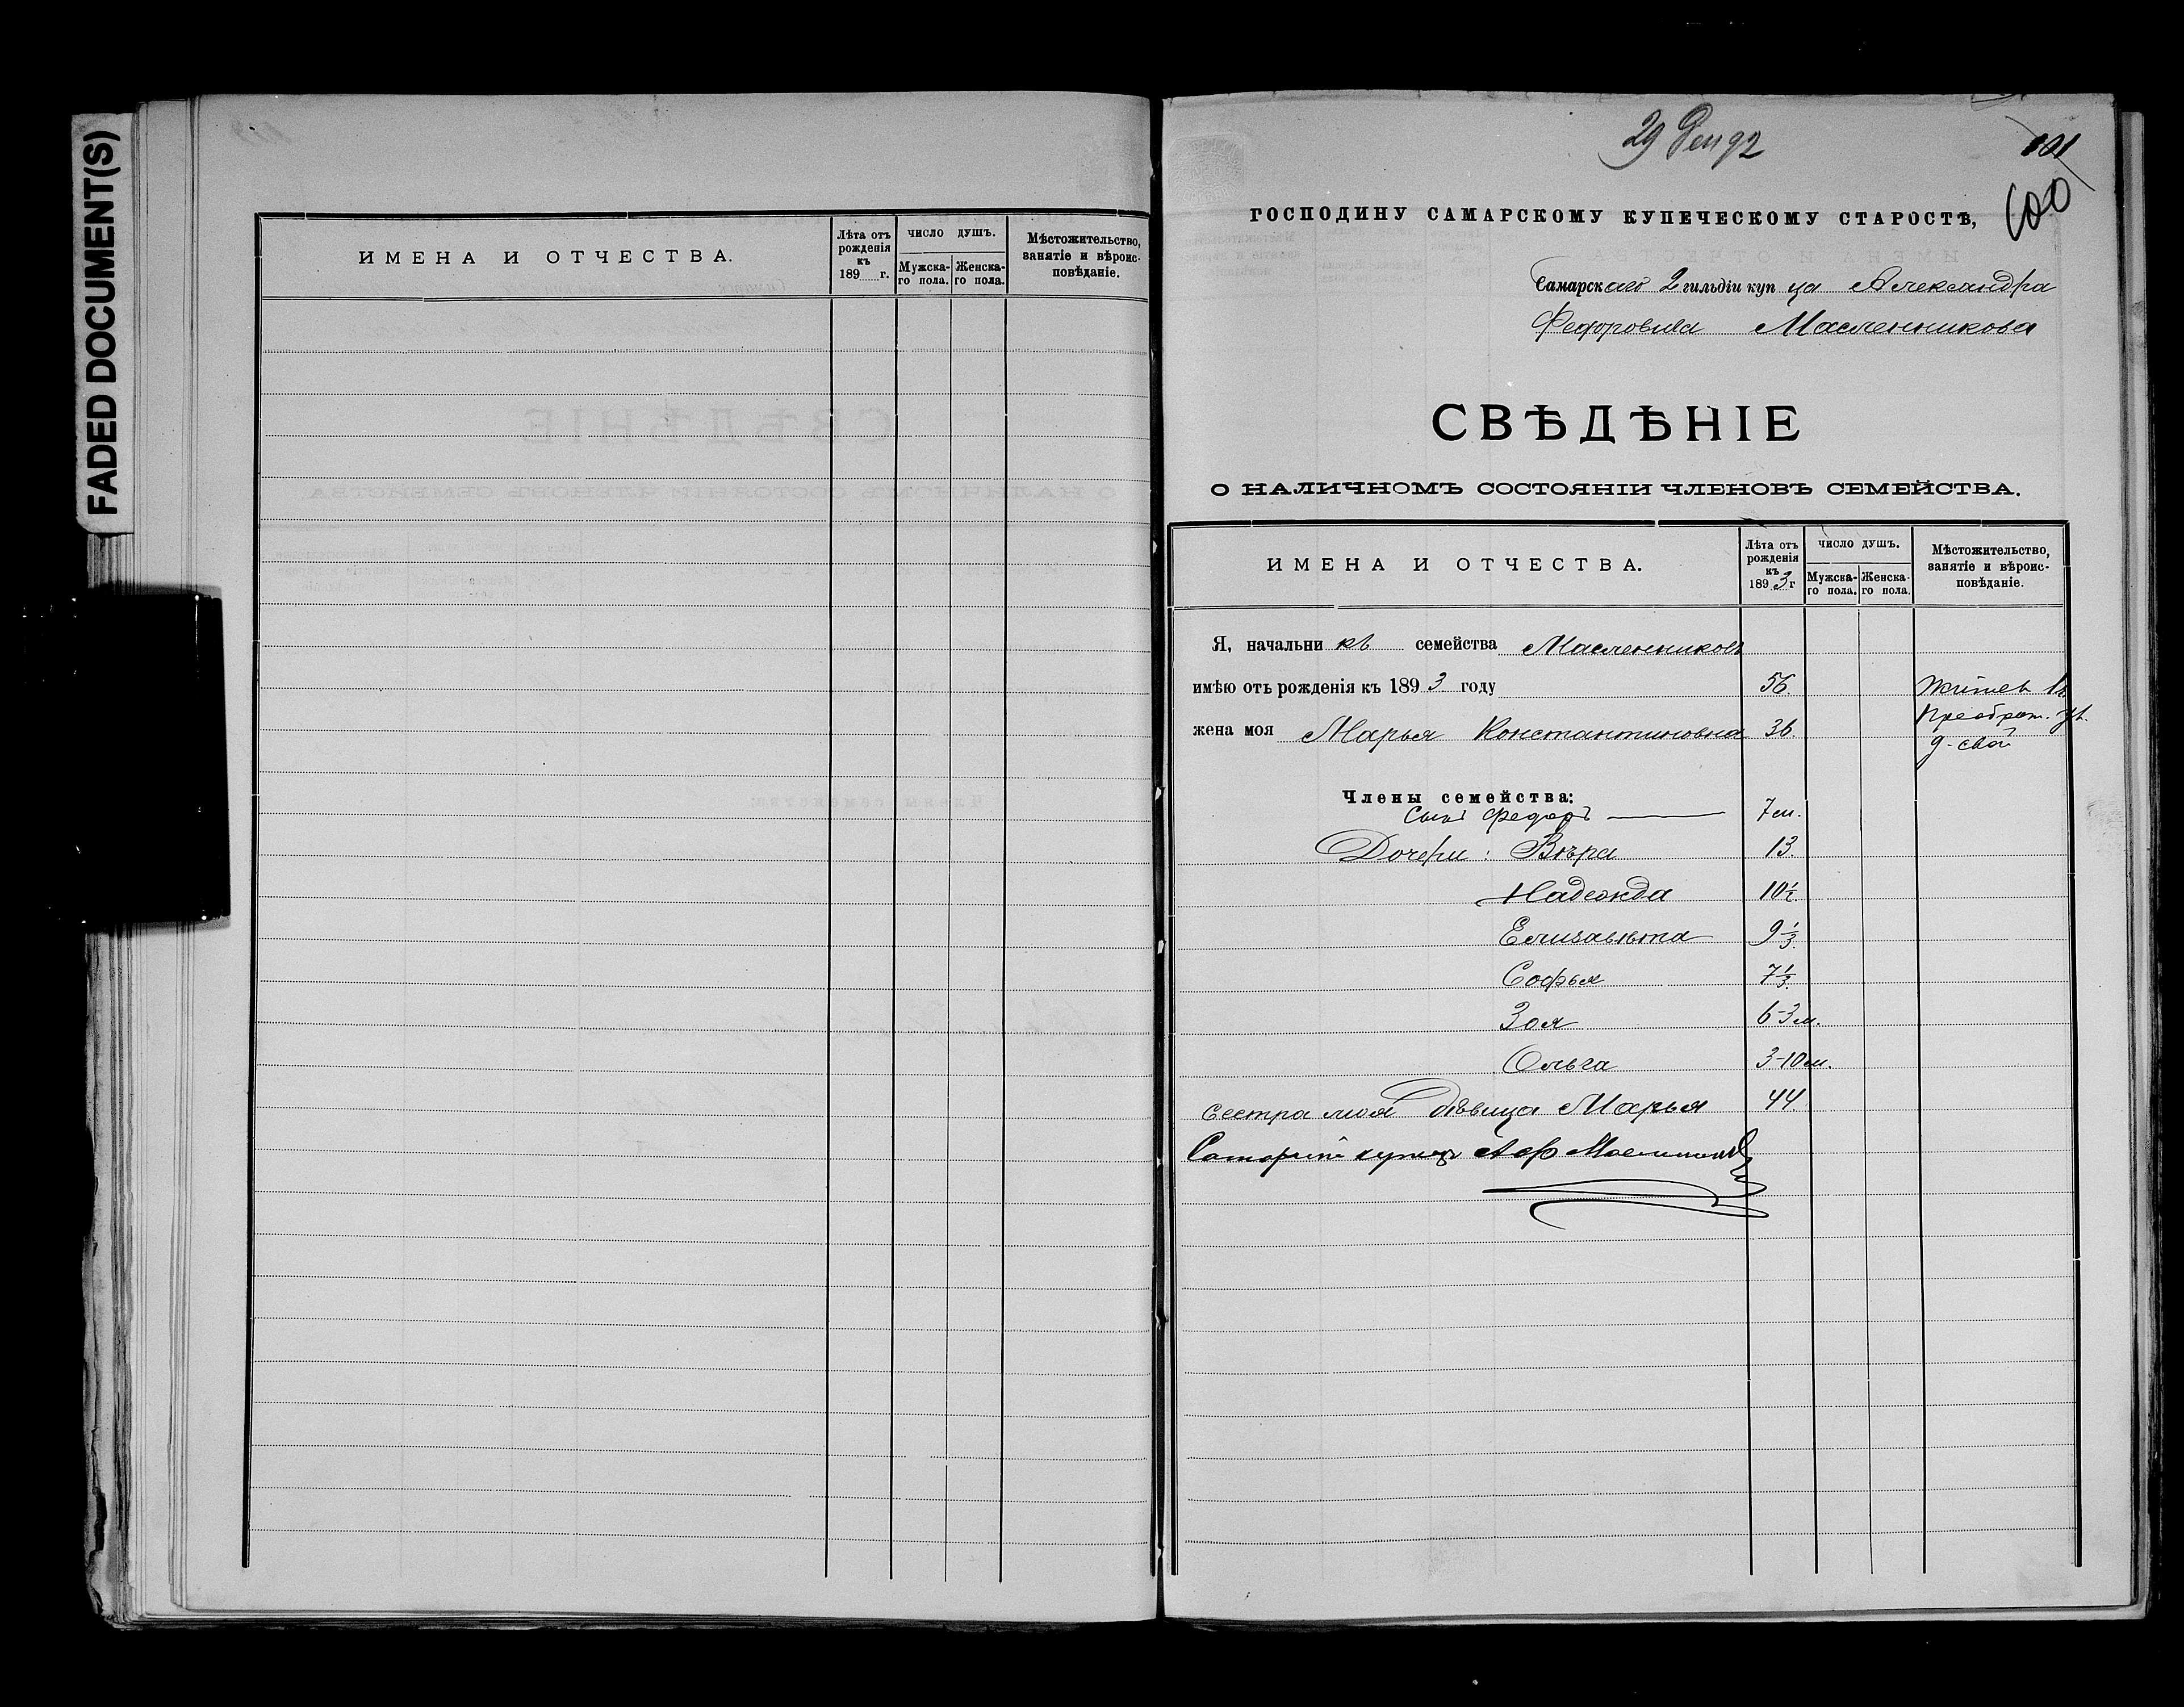 FADED DOCUMENT(S)
ИМЕНА И ОТЧЕСТВА.
Лѣта отъ рожденія къ 189 г.
ЧИСЛО ДУШЪ.
Мужска-го пола.
Женска-го пола.
Мѣстожительство, занятіе и вѣроис-повѣданіе.
29 Дек 92
101
100
ГОСПОДИНУ САМАРСКОМУ КУПЕЧЕСКОМУ СТАРОСТѢ,
Самарскаго 2 гильдіи купца Александра
Федоровича Масленникова
СВѢДѢНІЕ
О НАЛИЧНОМЪ СОСТОЯНІИ ЧЛЕНОВЪ СЕМЕЙСТВА.
ИМЕНА И ОТЧЕСТВА.
Лѣта отъ рожденія къ 1893 г
ЧИСЛО ДУШЪ.
Мужска-го пола.
Женска-го пола.
Мѣстожительство, занятіе и вѣроис-повѣданіе.
Я, начальникъ семейства Масленниковъ
имѣю отъ рожденія къ 1893 году 56
жена моя Марья Константиновна 36.
д. свой
Члены семейства:
Сынъ Федоръ 7 м.
Дочери: Вѣра 13.
Надежда 10½.
Елизавѣта 9⅓.
Софья 7⅓.
Зоя 6-3 м.
Ольга 3-10 м.
сестра моя дѣвица Марья 44.
Самарскій купецъ А Ф Масленниковъ